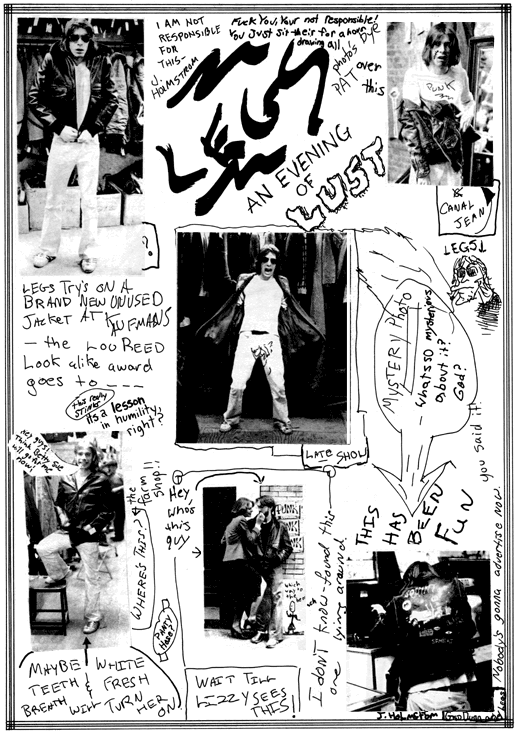 I AM NOT
RESPONSIBLE
FOR
THIS-
J.
HOLMSTROM
Fuck You, Your not responsible!
You Just sit their for a hour
drawing all
photo's
PAT
over
this
PUNK
AN EVENING
OF
LUST
&
CANAL
JEAN
LEGS↓
LEGS TRY'S ON A
BRAND NEW UNUSED
JACKET AT KAUFMANS
— the LOU REED
LOOK alike award
goes to ---
this really
STINKS
its a lesson
in humility,
right?
MYSTERY PHOTO
- whats so mysterious
about it?
God?
you said it!
LATE SHOW
THIS
HAS
BEEN
FUN
no guys!
Think Betty Sue
will go for me
now!
WHERE'S THIS?
the
farm
shop!!
Hey,
who's
this
guy
PUNK
I don't know - found this
one lying around
Nobody's gonna advertise now.
MAYBE WHITE
TEETH & FRESH
BREATH WILL TURN
HER ON
WAIT TILL
LIZZY SEES
THIS!
J. HOLMSTROM